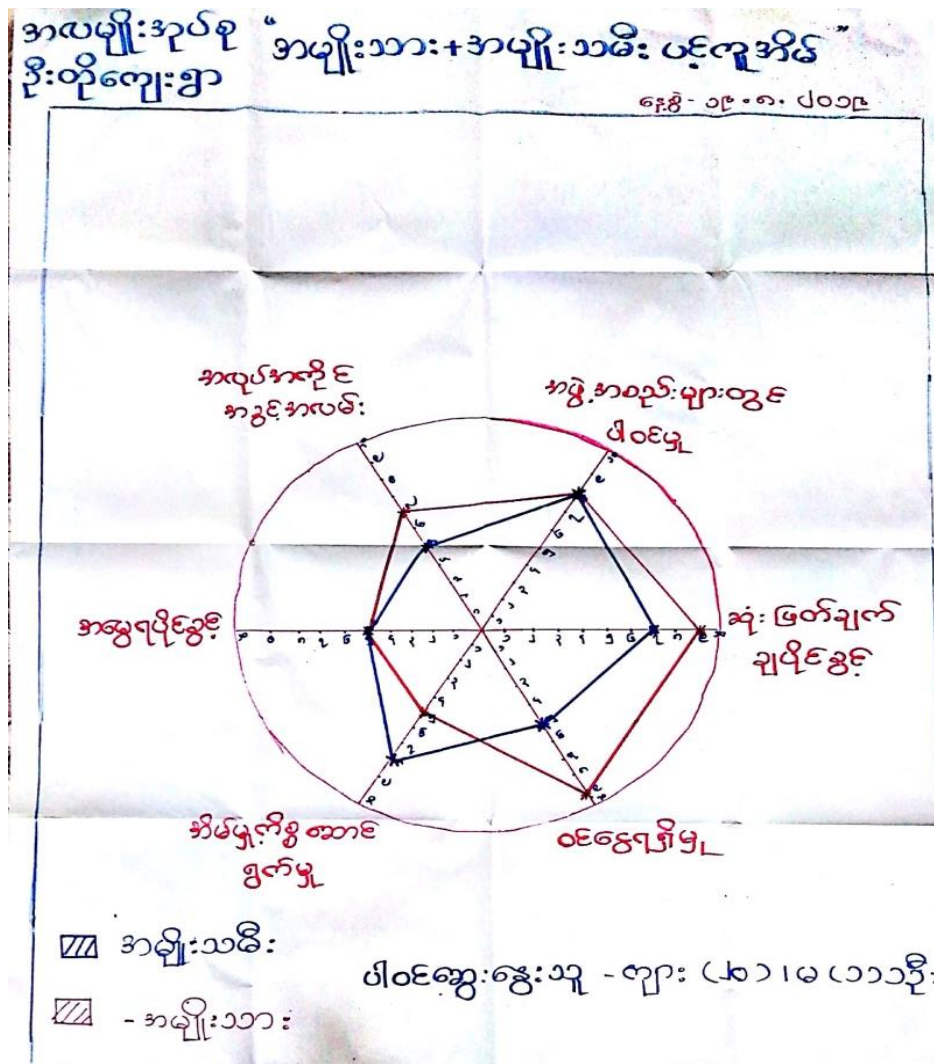 အလမျိုးအုပ်စု "အမျိုးသား+အမျိုးသမီး ပင့်ကူအိမ်"
ဦးတိုကျေးရွာ
နေ့စွဲ - ၁၉.၈.၂၀၁၉
အလုပ်အကိုင်
အခွင့်အလမ်း
အဖွဲ့အစည်းများတွင်
ပါဝင်မှု
အမွေရပိုင်ခွင့်
ဆုံးဖြတ်ချက်
ချပိုင်ခွင့်
အိမ်မှုကိစ္စဆောင်
ရွက်မှု
ဝင်ငွေရရှိမှု
အမျိုးသမီး
- အမျိုးသား
ပါဝင်ဆွေးနွေးသူ - ကျား (၂၀) ၊ မ (၁၁)ဦး